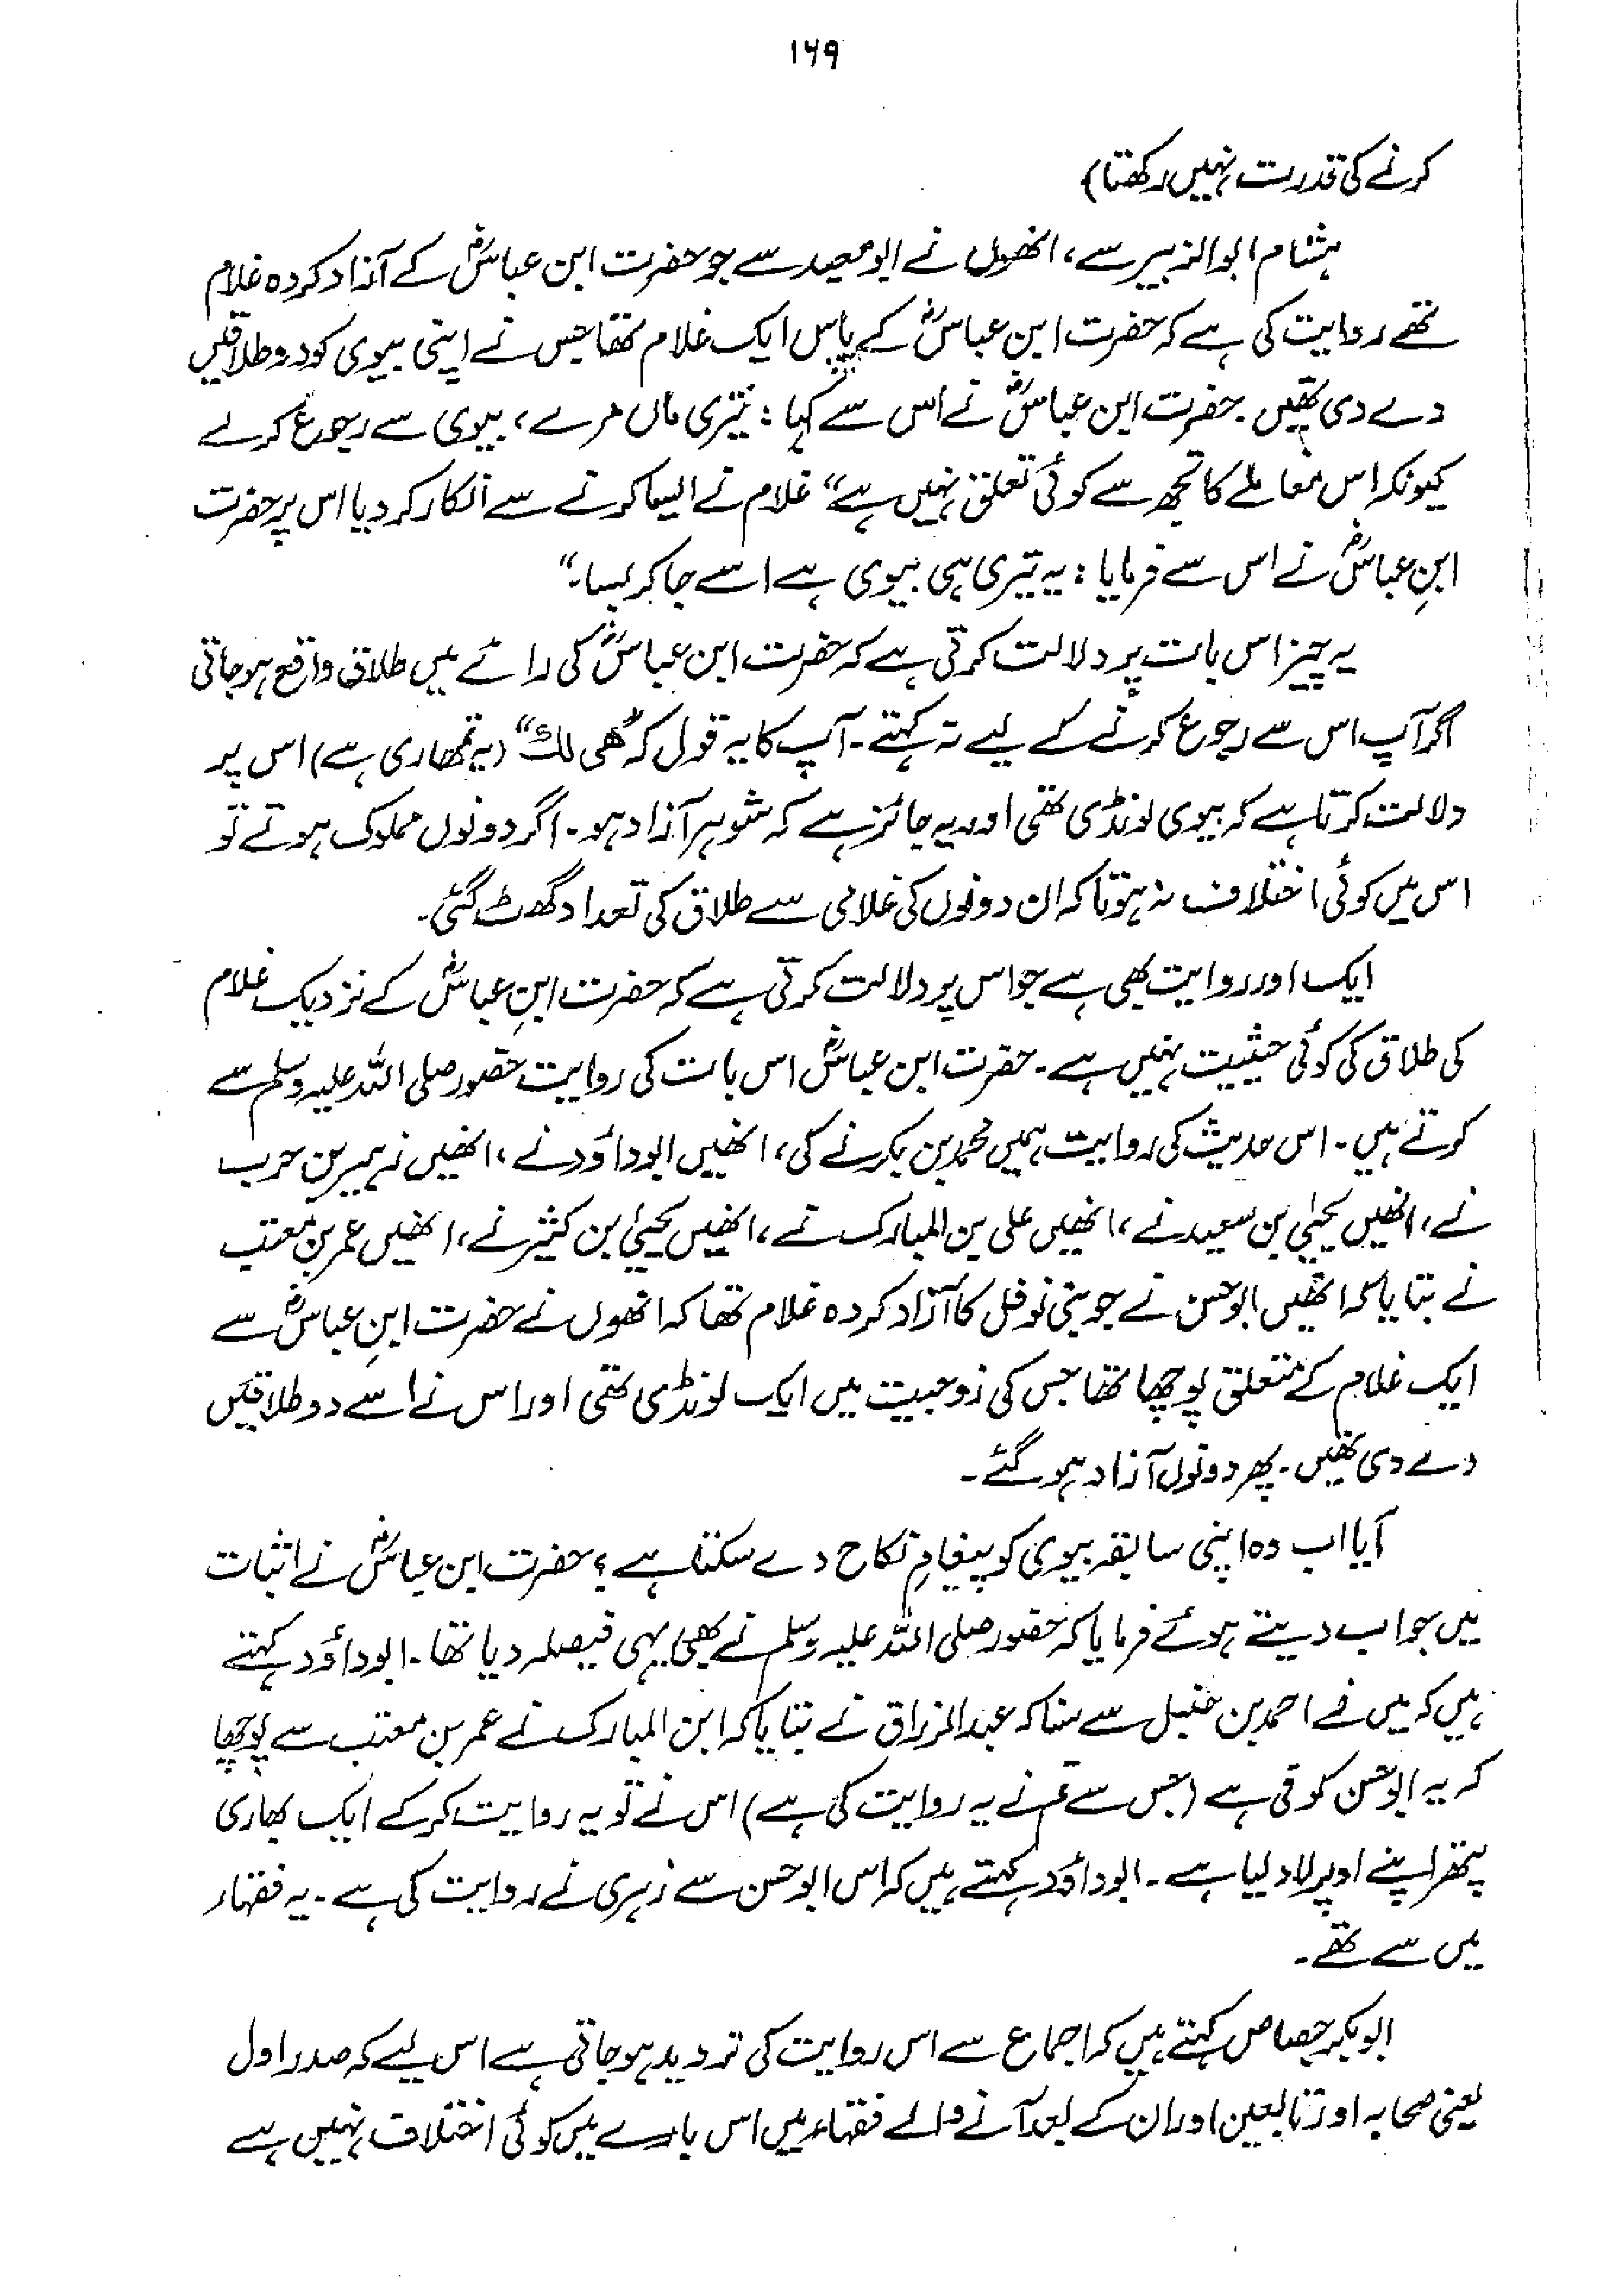 ۱۶۹
کرنے کی قدرت نہیں رکھتا)
ہشام ابوالزبیر سے، انھوں نے ابومعبد سے جو حضرت ابن عباسؓ کے آزاد کردہ غلام
تھے روایت کی ہے کہ حضرت ابن عباسؓ کے پاس ایک غلام تھا جس نے اپنی بیوی کو دو طلاقیں
دے دی تھیں۔ حضرت ابن عباسؓ نے اس سے کہا : تیری ماں مرے، بیوی سے رجوع کرلے
کیونکہ اس معاملے کا تجھ سے کوئی تعلق نہیں ہے“ غلام نے ایسا کرنے سے انکار کر دیا اس پر حضرت
ابنِ عباسؓ نے اس سے فرمایا : یہ تیری ہی بیوی ہے اسے جا کر بسا۔“
یہ چیز اس بات پر دلالت کرتی ہے کہ حضرت ابن عباسؓ کی رائے میں طلاق واقع ہو جاتی
اگر آپ اس سے رجوع کرنے کے لیے نہ کہتے۔ آپ کا یہ قول کہ ”ھی لک“ (یہ تمھاری ہے) اس پر
دلالت کرتا ہے کہ بیوی لونڈی تھی اور یہ جائز ہے کہ شوہر آزاد ہو۔ اگر دونوں مملوک ہوتے تو
اس میں کوئی اختلاف نہ ہوتا کہ ان دونوں کی غلامی سے طلاق کی تعداد گھٹ گئی۔
ایک اور روایت بھی ہے جو اس پر دلالت کرتی ہے کہ حضرت ابنِ عباسؓ کے نزدیک غلام
کی طلاق کی کوئی حیثیت نہیں ہے۔ حضرت ابن عباسؓ اس بات کی روایت حضور صلی اللہ علیہ وسلم سے
کرتے ہیں۔ اس حدیث کی روایت ہمیں محمد بن بکر نے کی، انھیں ابوداؤد نے، انھیں زہیر بن حرب
نے، انھیں یحییٰ بن سعید نے، انھیں علی بن المبارک نے، انھیں یحییٰ بن کثیر نے، انھیں عمر بن معتب
نے بتایا کہ انھیں ابوحسن نے جو بنی نوفل کا آزاد کردہ غلام تھا کہ انھوں نے حضرت ابنِ عباسؓ سے
ایک غلام کے متعلق پوچھا تھا جس کی زوجیت میں ایک لونڈی تھی اور اس نے اسے دو طلاقیں
دے دی تھیں۔ پھر دونوں آزاد ہو گئے۔
آیا اب وہ اپنی سابقہ بیوی کو پیغامِ نکاح دے سکتا ہے؟ حضرت ابن عباسؓ نے اثبات
میں جواب دیتے ہوئے فرمایا کہ حضور صلی اللہ علیہ وسلم نے بھی یہی فیصلہ دیا تھا۔ ابوداؤد کہتے
ہیں کہ میں نے احمد بن حنبل سے سنا کہ عبدالرزاق نے بتایا کہ ابن المبارک نے عمر بن معتب سے پوچھا
کہ یہ ابوحسن کوفی ہے (جس سے تم نے یہ روایت کی ہے) اس نے تو یہ روایت کرکے ایک بھاری
پتھر اپنے اوپر لاد لیا ہے۔ ابوداؤد کہتے ہیں کہ اس ابوحسن سے زہری نے روایت کی ہے۔ یہ فقہاء
میں سے تھے۔
ابوبکر جصاص کہتے ہیں کہ اجماع سے اس روایت کی تردید ہو جاتی ہے اس لیے کہ صدر اول
یعنی صحابہ اور تابعین اور ان کے بعد آنے والے فقہاء میں اس بارے میں کوئی اختلاف نہیں ہے